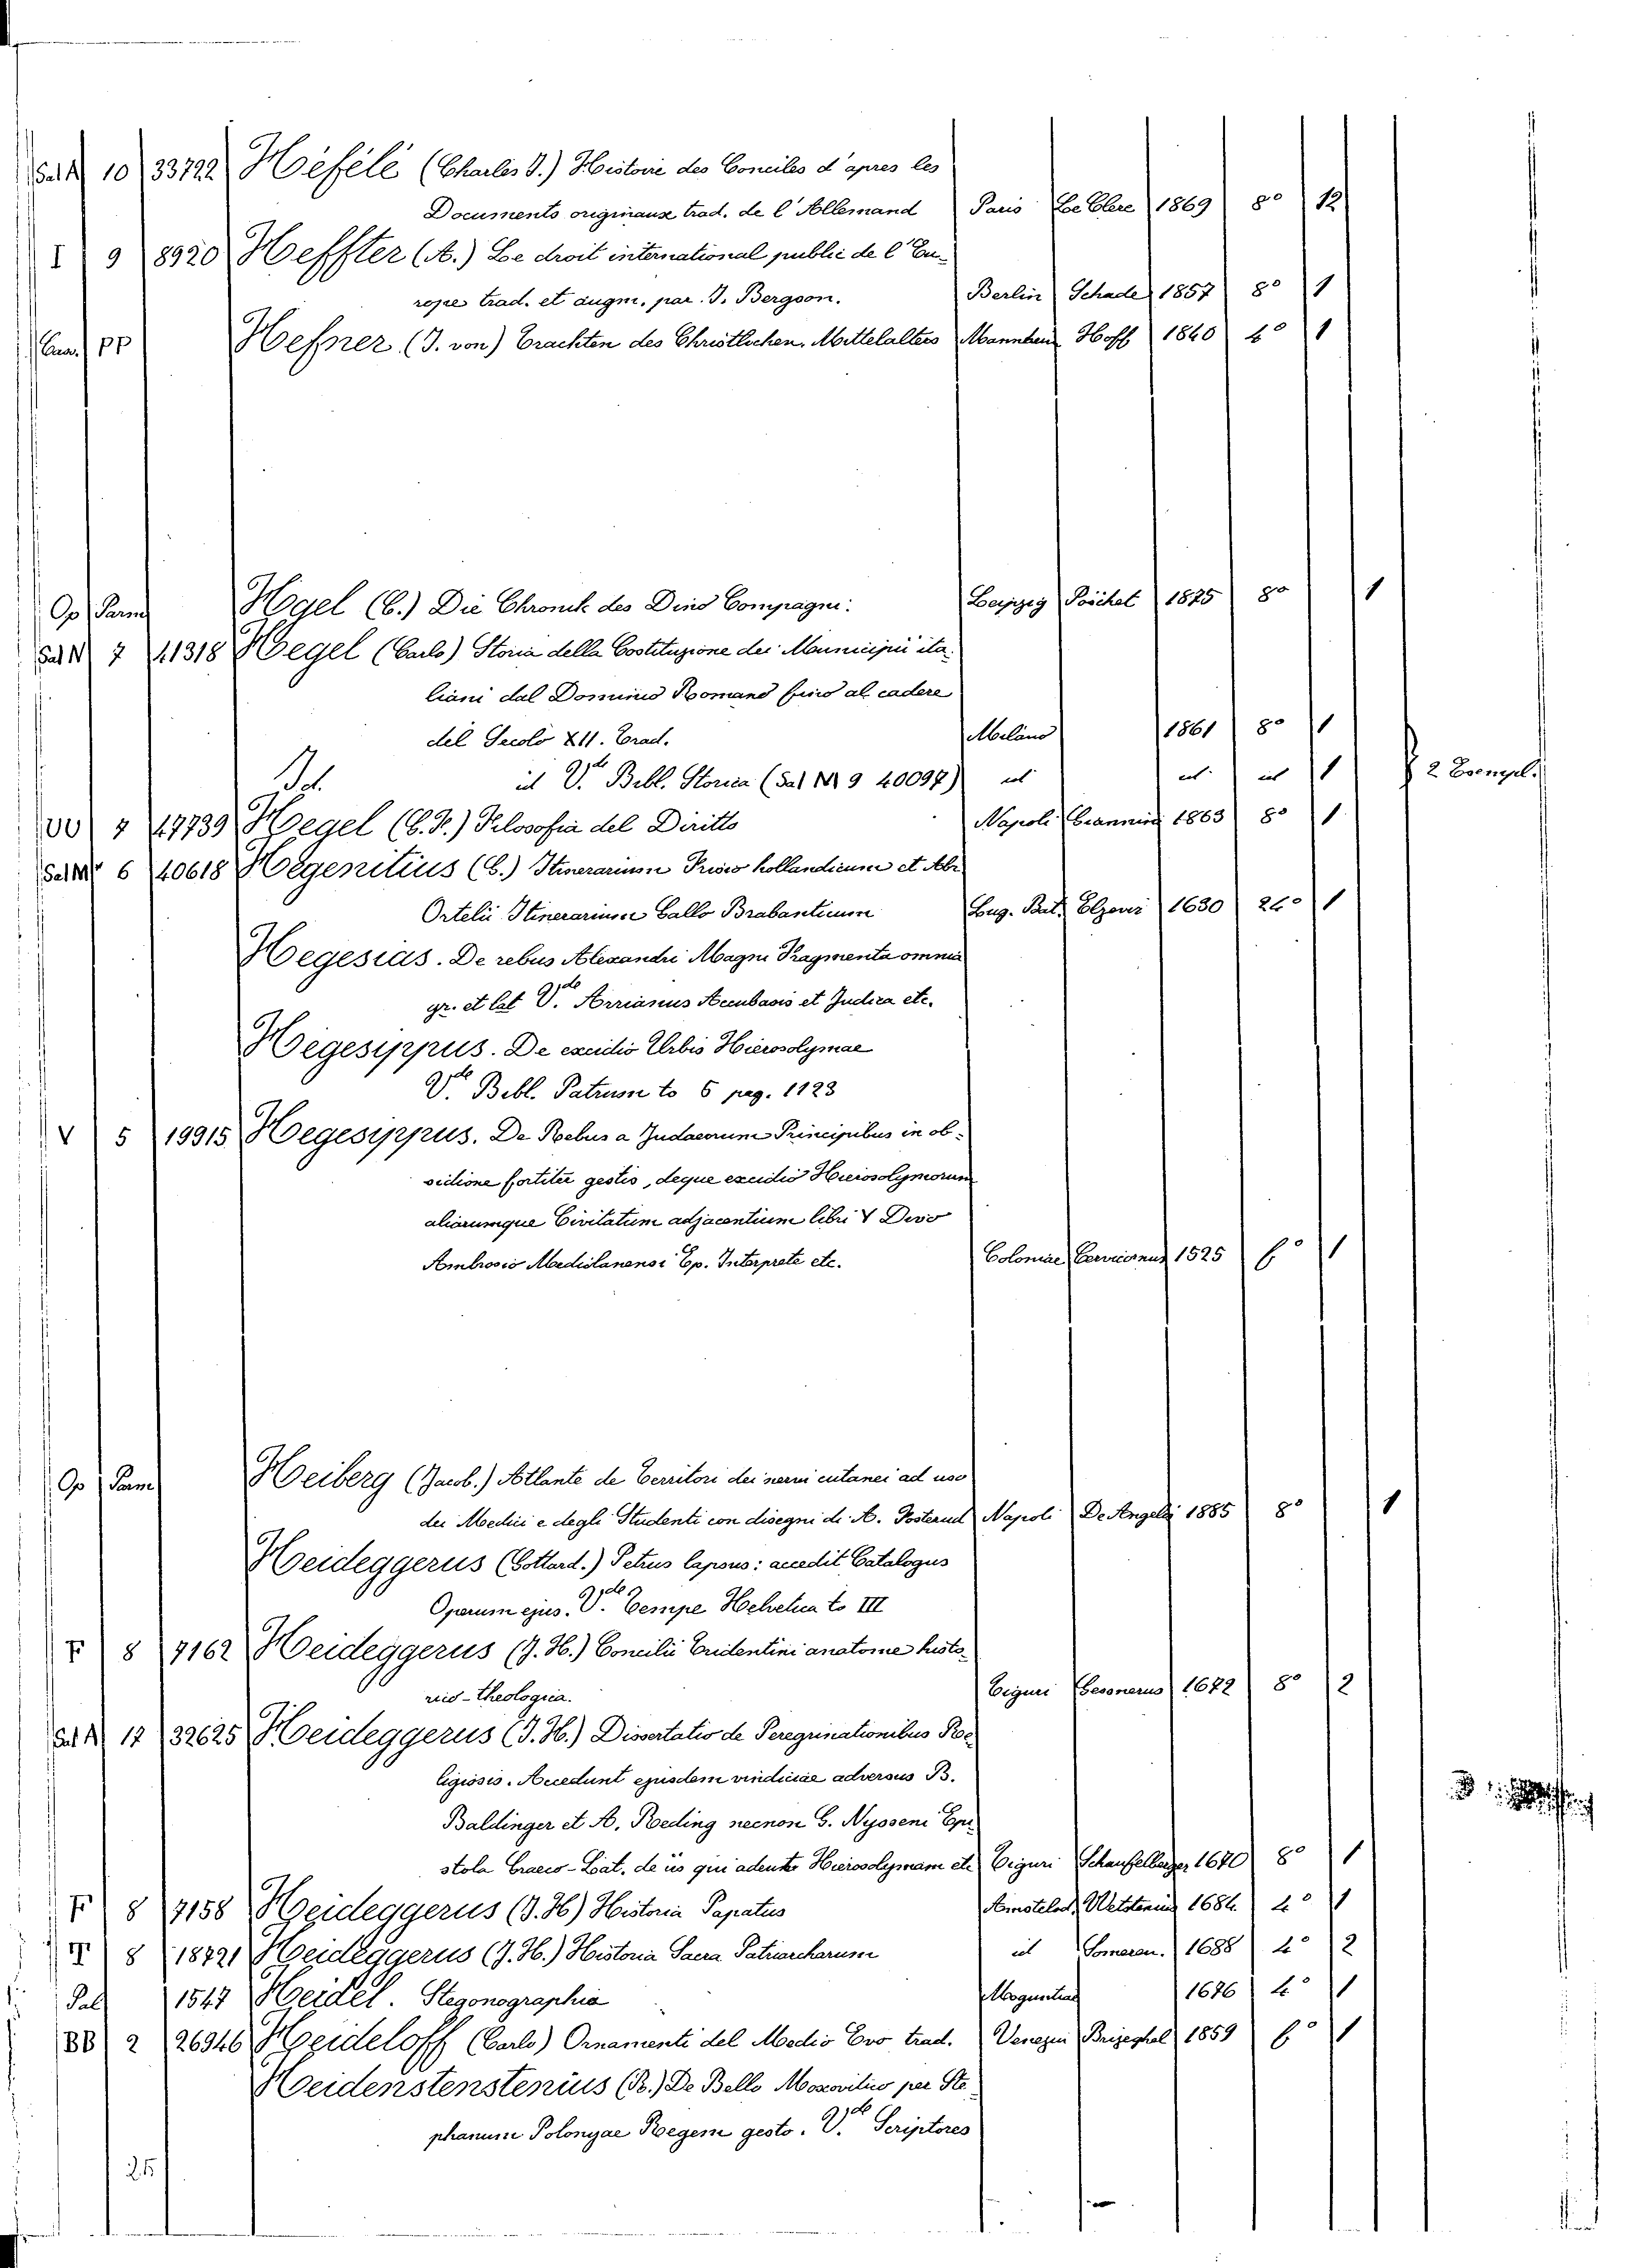 Sal A 10 33722 Hefélé (Charles J.) Histoire des Conciles d'apres les
Documents originaux trad. de l'Allemand Paris Le Clere 1869 8° 12
I 9 8920 Heffter (A.) Le droit international public de l'Eu-
rope trad. et augm. par J. Bergson. Berlin Schade 1857 8° 1
Cam. PP Hefner (J. von) Trachten des Christlichen Mittelalters Mannheim Hoff 1840 4° 1
Op Parm Hegel (C.) Die Chronik des Dino Compagni: Leipzig 1875 8° 1
Sal N 7 41318 Hegel (Carlo) Storia della Costituzione dei Municipii ita-
liani dal Dominio Romano fino al cadere
del Secolo XII. Trad. Milano 1861 8° 1
Id. id V.de Bibl. Storica (Sal M 9 40097) id id id 1 2 Esempl.
VV 7 47739 Hegel (G. F.) Filosofia del Diritto Napoli 1863 8° 1
Sal M 6 40618 Hegenitius (G.) Itinerarium Frisio hollandicum et Abr
Ortelii Itinerarium Gallo Brabanticum Lug. Bat. Elzevir 1630 24° 1
Hegesias. De rebus Alexandri Magni Fragmenta omnia
gr. et lat V.de Arrianus Anabasis et Indica etc.
Hegesippus. De excidio Urbis Hierosolymae
V.de Bibl. Patrum to 5 pag. 1123
V 5 19915 Hegesippus. De Rebus a Judaeorum Principibus in ob-
sidione fortiter gestis, deque excidio Hierosolymorum
aliarumque Civitatum adjacentium libri V Divo
Ambrosio Mediolanensi Ep. Interprete etc. Coloniae Cervicornus 1525 f° 1
Op Parm Heiberg (Jacob.) Atlante de Territori dei nervi cutanei ad uso
dei Medici e degli Studenti con disegni di A. Napoli De Angelis 1885 8° 1
Heideggerus (Gottard.) Petrus lapsus: accedit Catalogus
Operum ejus. V.de Tempe Helvetica to III
F 8 7162 Heideggerus (J. H.) Concilii Tridentini anatome histo-
rico-theologica. Tiguri Gesnerus 1672 8° 2
Sal A 17 32625 Heideggerus (J. H.) Dissertatio de Peregrinationibus Re-
ligiosis. Accedunt ejusdem vindiciae adversus B.
Baldinger et A. Reding necnon G. Nysseni Epi-
stola Graeco-Lat. de iis qui adeunt Hierosolymam etc Tiguri Schaufelberger 1670 8° 1
F 8 7158 Heideggerus (J. H) Historia Papatus Amstelod. Wetstenius 1684. 4° 1
T 8 18721 Heideggerus (J. H.) Historia Sacra Patriarcharum id Someren. 1688 4° 2
Pal 1547 Heidel. Steganographia Moguntiae 1676 4° 1
BB 2 26946 Heideloff (Carlo) Ornamenti del Medio Evo trad. Venezia Brizeghel 1859 f° 1
Heidenstenstenius (R.) De Bello Moscovitico per Ste-
phanum Polonyae Regem gesto. V.de Scriptores
25